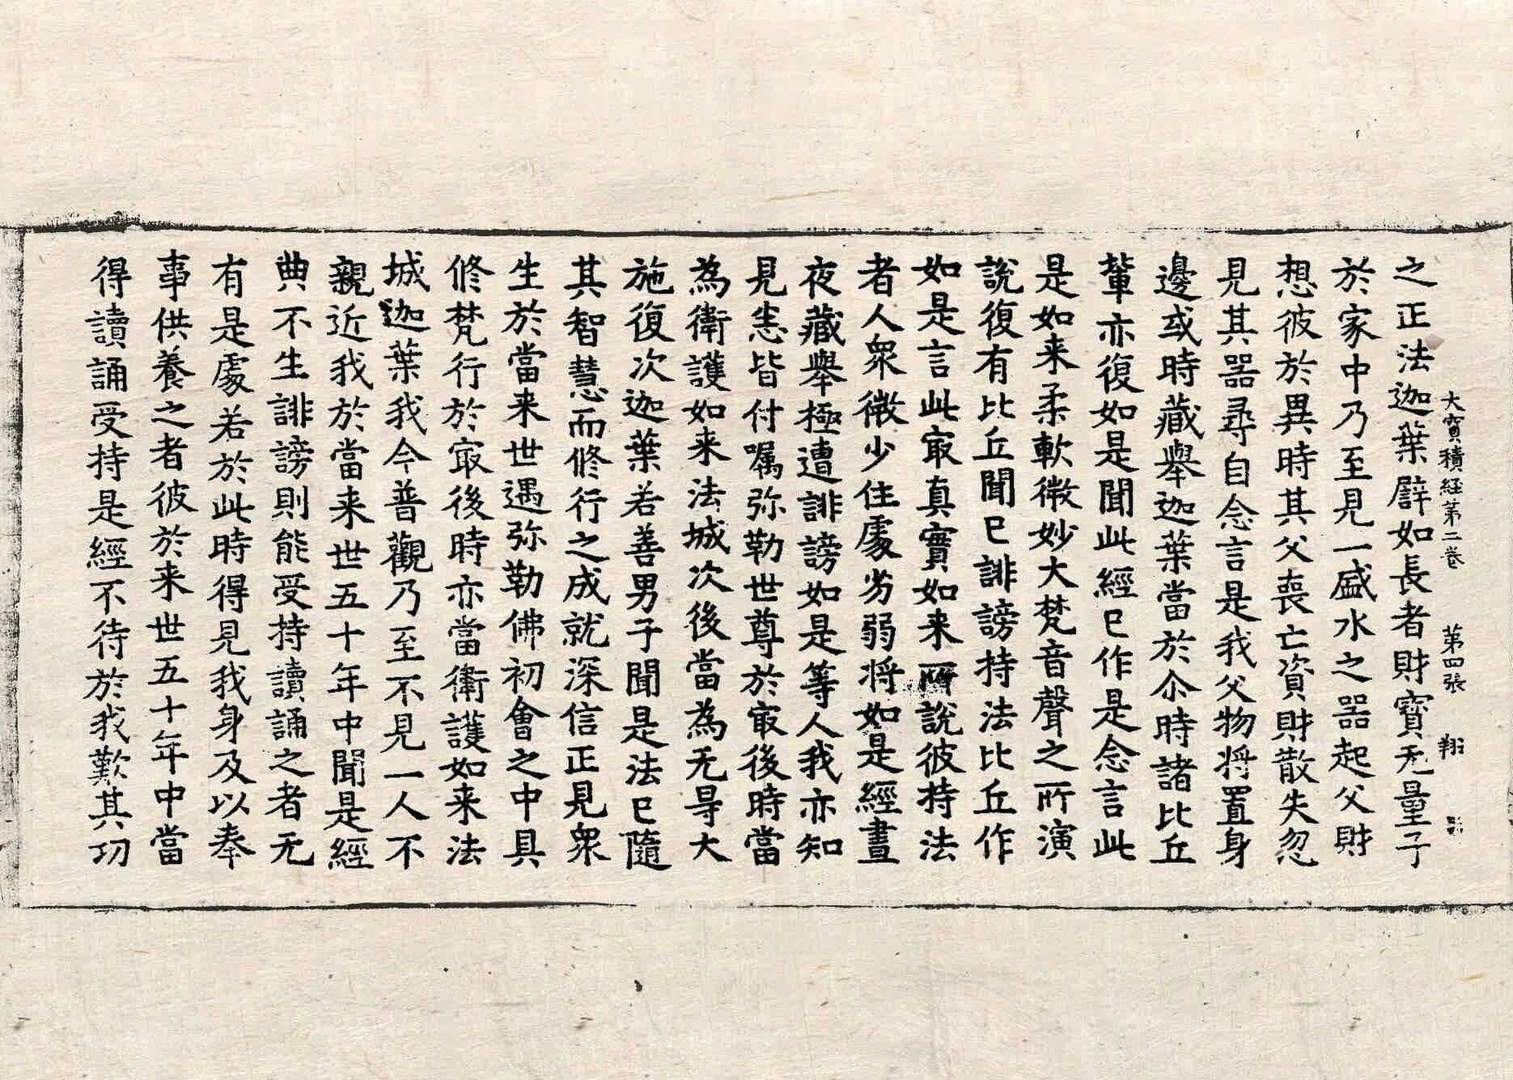 大寶積経第二卷 第四張 翔
之正法迦葉辟如長者財寶无量子
於家中乃至見一盛水之器起父財
想彼於異時其父喪亡資財散失忽
見其器尋自念言是我父物将置身
邊或時藏舉迦葉當於尒時諸比丘
輩亦復如是聞此經已作是念言此
是如来柔軟微妙大梵音聲之所演
說復有比丘聞已誹謗持法比丘作
如是言此㝡真實如来所說彼持法
者人衆微少住處劣弱将如是經晝
夜藏舉極遭誹謗如是等人我亦知
見悉皆付嘱弥勒世尊於㝡後時當
為衛護如来法城次後當為无㝵大
施復次迦葉若善男子聞是法已隨
其智慧而修行之成就深信正見衆
生於當来世遇弥勒佛初會之中具
修梵行於㝡後時亦當衛護如来法
城迦葉我今普觀乃至不見一人不
親近我於當来世五十年中聞是經
典不生誹謗則能受持讀誦之者无
有是處若於此時得見我身及以奉
事供養之者彼於来世五十年中當
得讀誦受持是經不待於我歎其功